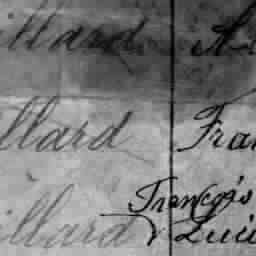 illard A
illard Fran
François
illard & Luci